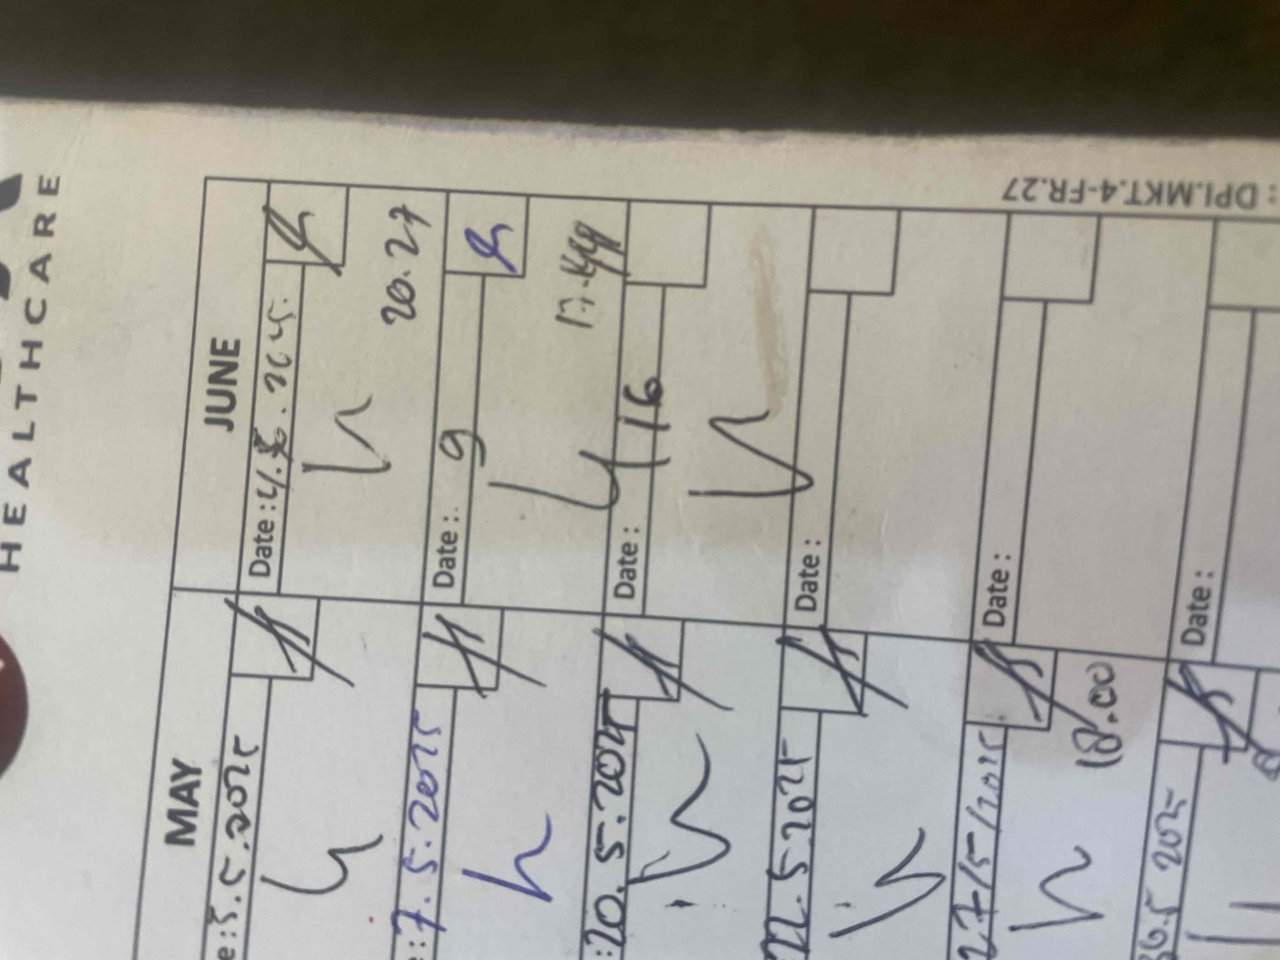 HEALTHCARE
: DPI.MKT.4-FR.27
MAY
JUNE
e : 5.5.2025
Date : 4.
2025.
20.27
e : 7.5.2025
Date : 9
17.49
: 20.5.2025
Date : 16
22.5.2025
Date :
27/5/2025.
Date :
18.00
2025
Date :